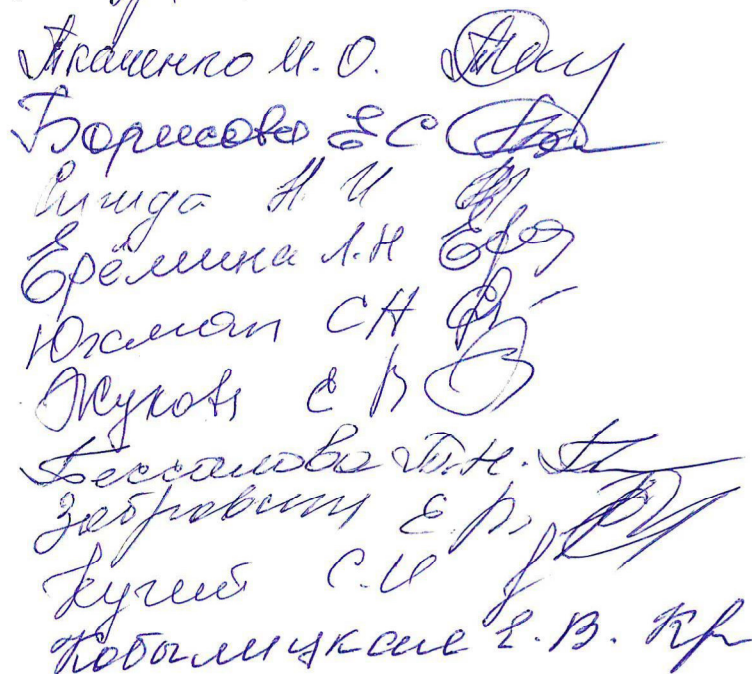 Ткаченко М.О.
Борисова Е С
Сигида Н И
Ерёмина Л.Н
Южман С Н
Жукова Е В
Бессалова Т.Н.
Е.В.
Кугий С.И
Кобылицкая Е.В.